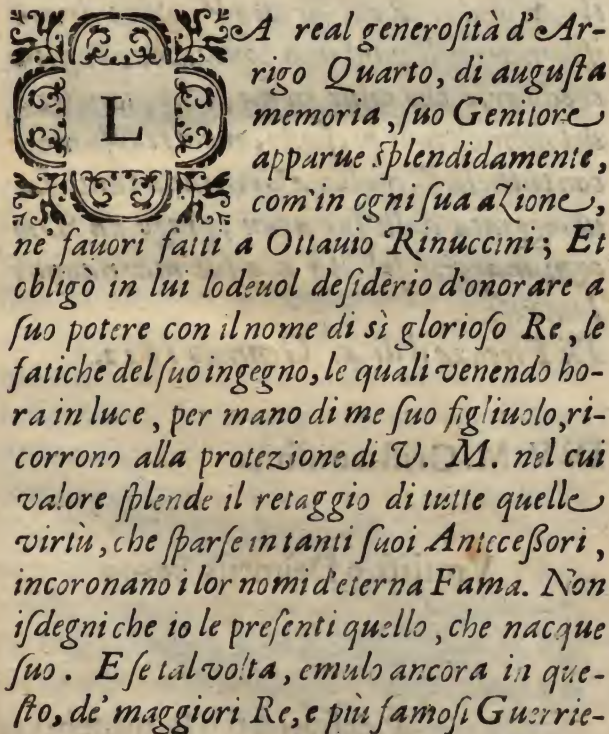 LA real generoſità d'Ar-
rigo Quarto, di auguſta
memoria, ſuo Genitore
apparue ſplendidamente,
com'in ogni ſua azione,
ne' fauori fatti a Ottauio Rinuccini; Et
obligò in lui lodeuol deſiderio d'onorare a
ſuo potere con il nome di sì glorioſo Re, le
fatiche del ſuo ingegno, le quali venendo ho-
ra in luce, per mano di me ſuo figliuolo, ri-
corrono alla protezione di V. M. nel cui
valore ſplende il retaggio di tutte quelle
virtù, che ſparſe in tanti ſuoi Anteceßori,
incoronano i lor nomi d'eterna Fama. Non
iſdegni che io le preſenti quello, che nacque
ſuo. E ſe tal volta, emulo ancora in que-
ſto, de' maggiori Re, e più famoſi Guerrie-